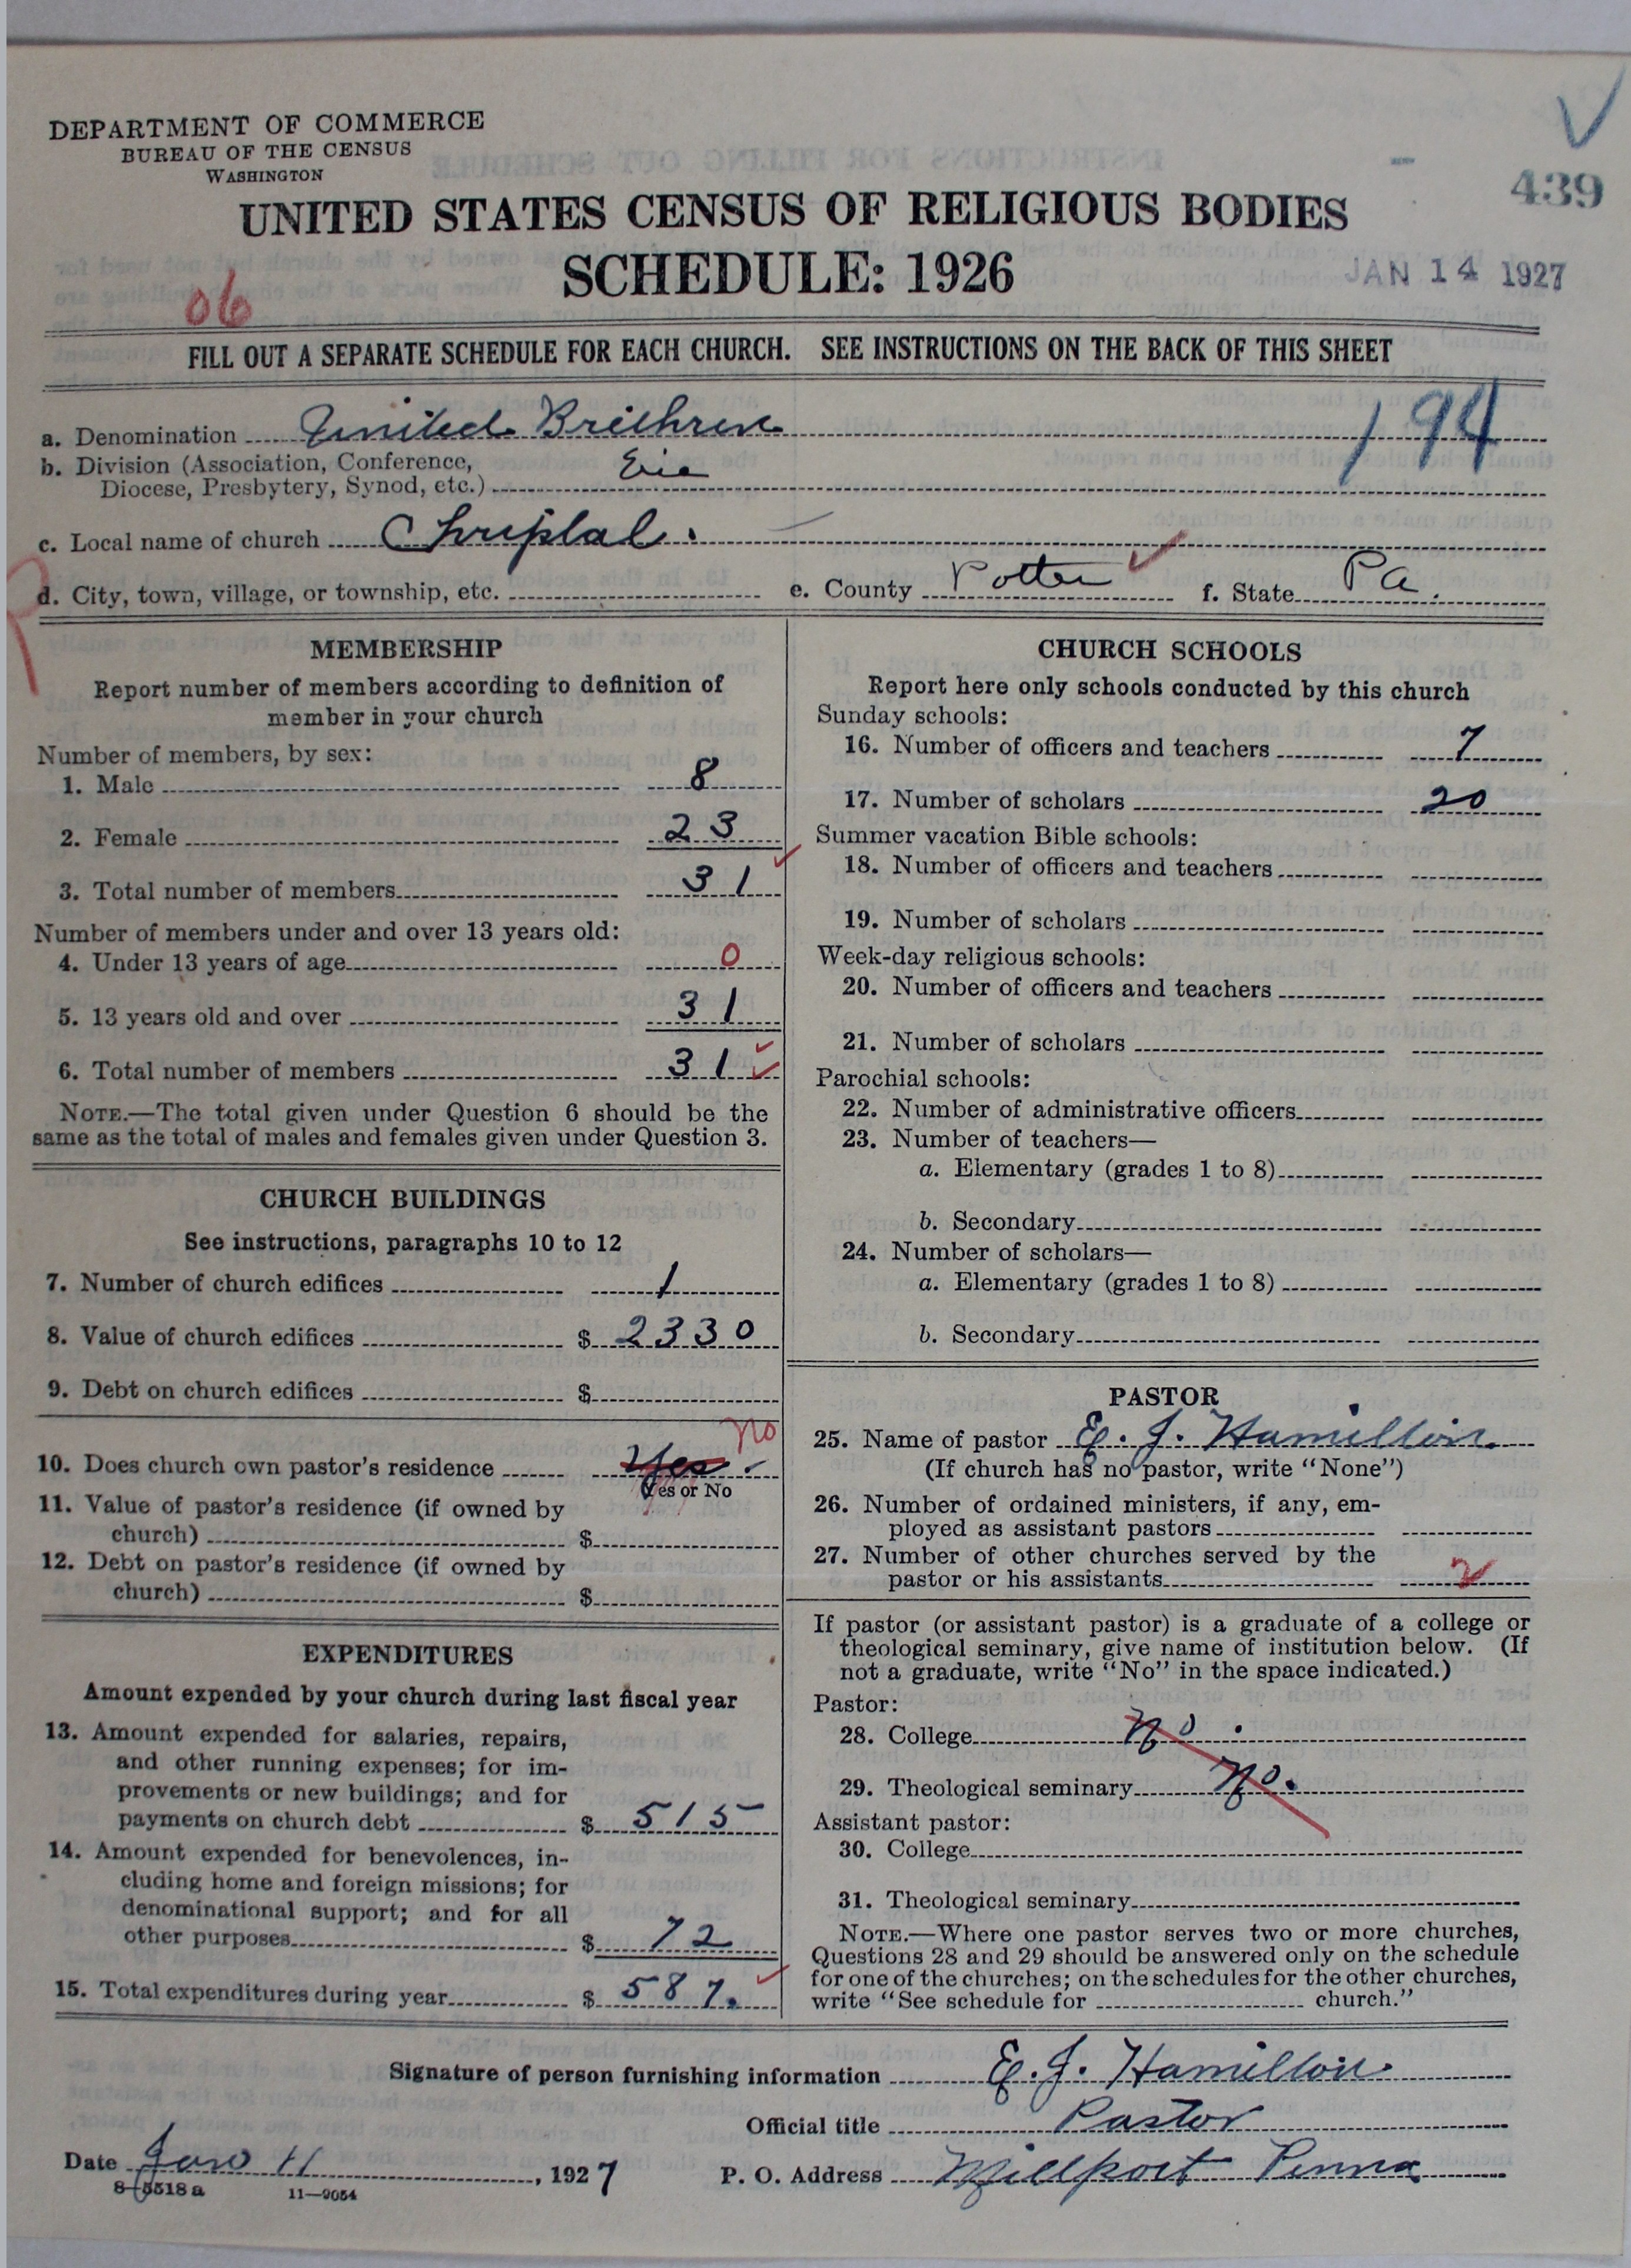 DEPARTMENT OF COMMERCE
BUREAU OF THE CENSUS
WASHINGTON
439
UNITED STATES CENSUS OF RELIGIOUS BODIES
SCHEDULE: 1926
JAN 14 1927
06
FILL OUT A SEPARATE SCHEDULE FOR EACH CHURCH. SEE INSTRUCTIONS ON THE BACK OF THIS SHEET
a. Denomination United Brethren 194
b. Division (Association, Conference, Erie
Diocese, Presbytery, Synod, etc.)
c. Local name of church
d. City, town, village, or township, etc. e. County Potter f. State Pa.
MEMBERSHIP
Report number of members according to definition of
member in your church
Number of members, by sex:
1. Male 8
2. Female 23
3. Total number of members 31
Number of members under and over 13 years old:
4. Under 13 years of age 0
5. 13 years old and over 31
6. Total number of members 31
NOTE.—The total given under Question 6 should be the
same as the total of males and females given under Question 3.
CHURCH BUILDINGS
See instructions, paragraphs 10 to 12
7. Number of church edifices 1
8. Value of church edifices $ 2330
9. Debt on church edifices $
no
10. Does church own pastor's residence Yes.
Yes or No
11. Value of pastor's residence (if owned by
church) $
12. Debt on pastor's residence (if owned by
church) $
EXPENDITURES
Amount expended by your church during last fiscal year
13. Amount expended for salaries, repairs,
and other running expenses; for im-
provements or new buildings; and for
payments on church debt $ 515
14. Amount expended for benevolences, in-
cluding home and foreign missions; for
denominational support; and for all
other purposes $ 72
15. Total expenditures during year $ 587.
CHURCH SCHOOLS
Report here only schools conducted by this church
Sunday schools:
16. Number of officers and teachers 7
17. Number of scholars 20
Summer vacation Bible schools:
18. Number of officers and teachers
19. Number of scholars
Week-day religious schools:
20. Number of officers and teachers
21. Number of scholars
Parochial schools:
22. Number of administrative officers
23. Number of teachers—
a. Elementary (grades 1 to 8)
b. Secondary
24. Number of scholars—
a. Elementary (grades 1 to 8)
b. Secondary
PASTOR
25. Name of pastor E. J. Hamilton.
(If church has no pastor, write "None")
26. Number of ordained ministers, if any, em-
ployed as assistant pastors
27. Number of other churches served by the
pastor or his assistants 2
If pastor (or assistant pastor) is a graduate of a college or
theological seminary, give name of institution below. (If
not a graduate, write "No" in the space indicated.)
Pastor:
28. College No.
29. Theological seminary No.
Assistant pastor:
30. College
31. Theological seminary
NOTE.—Where one pastor serves two or more churches,
Questions 28 and 29 should be answered only on the schedule
for one of the churches; on the schedules for the other churches,
write "See schedule for church."
Signature of person furnishing information E. J. Hamilton.
Official title Pastor
Date Jan 11, 1927 P. O. Address Millport Penna
8-5518a 11-9054